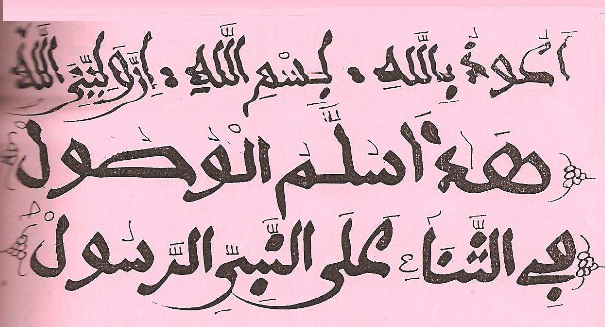 أعوذ بالله . بسم الله . إن وليي الله
هذا سلم الوصول
في الثناء على النبي الرسول